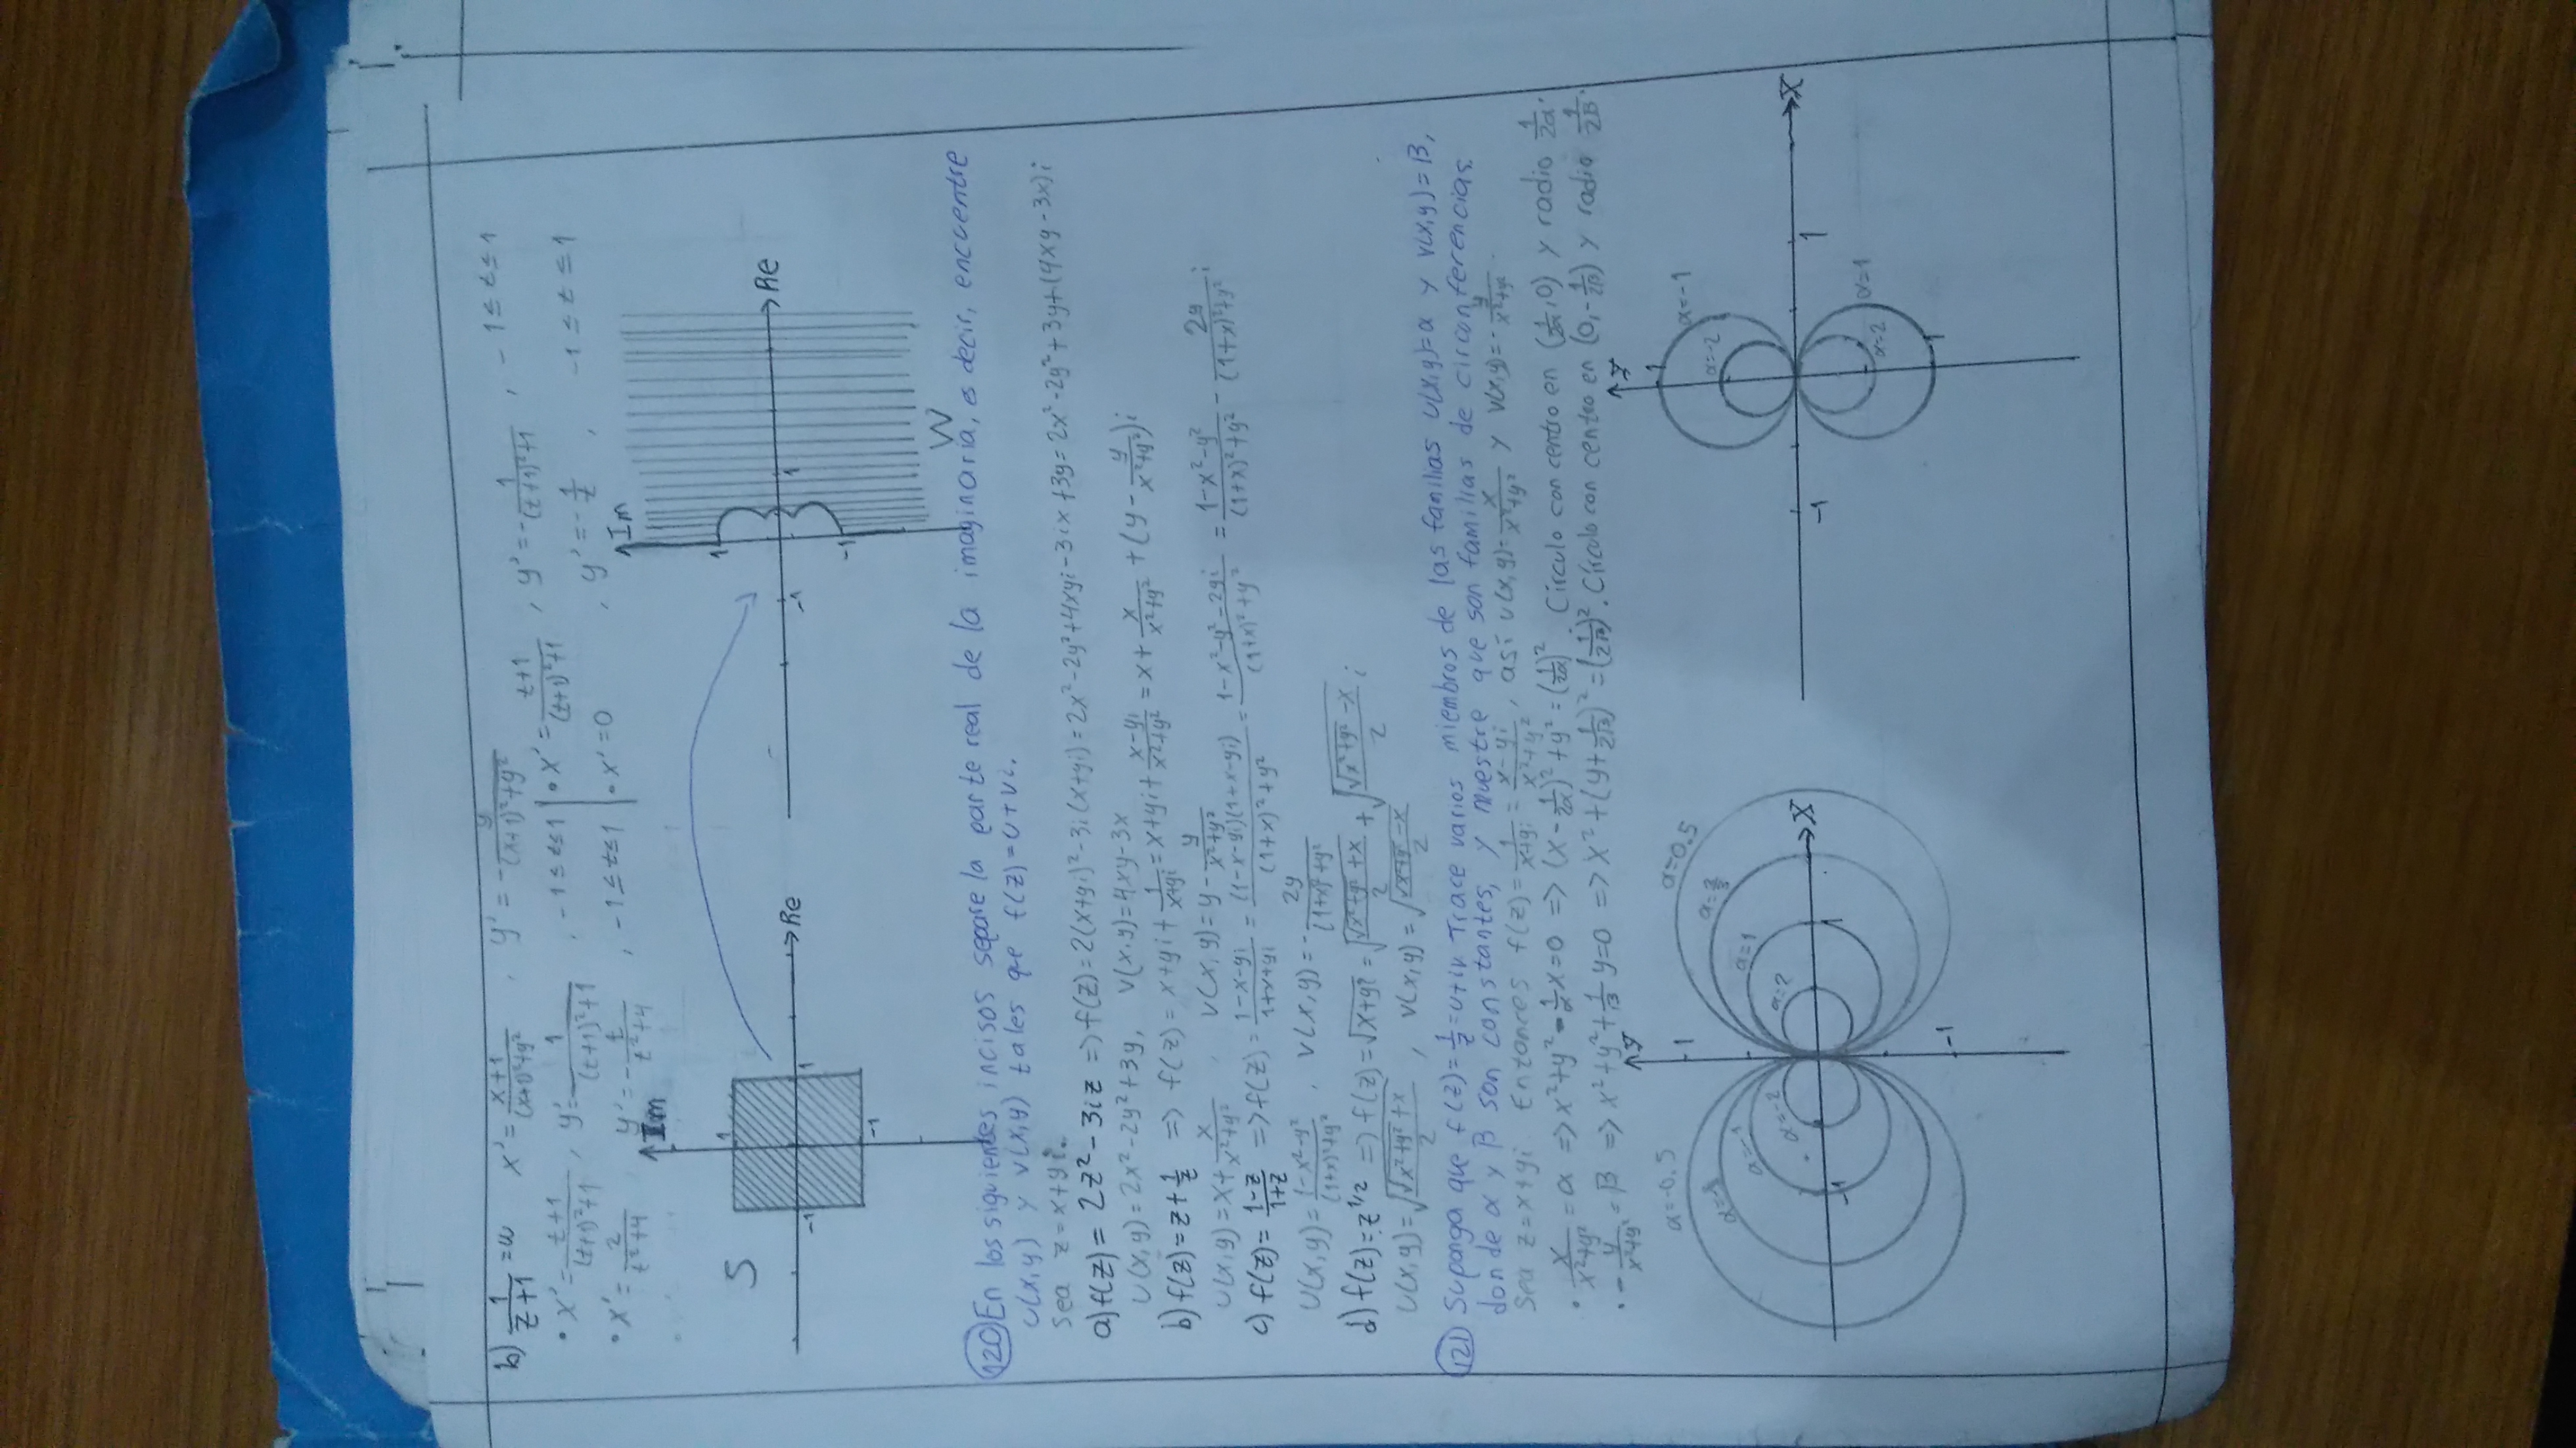 b) 1/(z+1) = w   x' = (x+1)/((x+1)²+y²) , y' = -y/((x+1)²+y²)
• x' = (t+1)/((t+1)²+1) , y' = 1/((t+1)²+1) , -1≤t≤1 | • x' = (t+1)/((t+1)²+1) , y' = -1/((t+1)²+1) , -1≤t≤1
• x' = 2/(t²+4) y' = -t/(t²+4) , -1≤t≤1 | • x' = 0 , y' = -1/t , -1≤t≤1
Im
S
1
-1
1
Re
-1
Im
1
-1
1
Re
-1
W
120) En los siguientes incisos separe la parte real de la imaginaria, es decir, encuentre
u(x,y) y v(x,y) tales que f(z)=u+vi.
Sea z=x+yi.
a) f(z) = 2z² - 3iz => f(z) = 2(x+yi)² - 3i(x+yi) = 2x² - 2y² + 4xyi - 3ix + 3y = 2x² - 2y² + 3y + (4xy - 3x)i
u(x,y) = 2x² - 2y² + 3y, v(x,y) = 4xy - 3x
b) f(z) = z + 1/z => f(z) = x+yi + 1/(x+yi) = x+yi + (x-yi)/(x²+y²) = x + x/(x²+y²) + (y - y/(x²+y²))i
u(x,y) = x + x/(x²+y²) , v(x,y) = y - y/(x²+y²)
c) f(z) = (1-z)/(1+z) => f(z) = (1-x-yi)/(1+x+yi) = (1-x-yi)(1+x-yi)/((1+x)²+y²) = (1-x²-y²-2yi)/((1+x)²+y²) = (1-x²-y²)/((1+x)²+y²) - 2y/((1+x)²+y²) i
u(x,y) = (1-x²-y²)/((1+x)²+y²) , v(x,y) = -2y/((1+x)²+y²)
d) f(z) = z^1/2 => f(z) = √(x+yi) = √((√(x²+y²)+x)/2) + √((√(x²+y²)-x)/2) i
u(x,y) = √((√(x²+y²)+x)/2) , v(x,y) = √((√(x²+y²)-x)/2)
121) Suponga que f(z) = 1/z = u+iv. Trace varios miembros de las familias u(x,y)=α y v(x,y)=β,
donde α y β son constantes, y muestre que son familias de circunferencias.
Sea z=x+yi. Entonces f(z) = 1/(x+yi) = (x-yi)/(x²+y²), así u(x,y) = x/(x²+y²) y v(x,y) = -y/(x²+y²).
• x/(x²+y²) = α => x²+y² - (1/α)x = 0 => (x - 1/2α)² + y² = (1/2α)². Círculo con centro en (1/2α, 0) y radio 1/2α.
• -y/(x²+y²) = β => x²+y² + (1/β)y = 0 => x² + (y + 1/2β)² = (1/2β)². Círculo con centro en (0, -1/2β) y radio 1/2β.
Y
α=-0.5
1
α=0.5
α=-1
α=1
α=-2
α=2
X
-1
1
-1
Y
1
α=-1
α=-2
X
-1
1
α=1
α=2
1